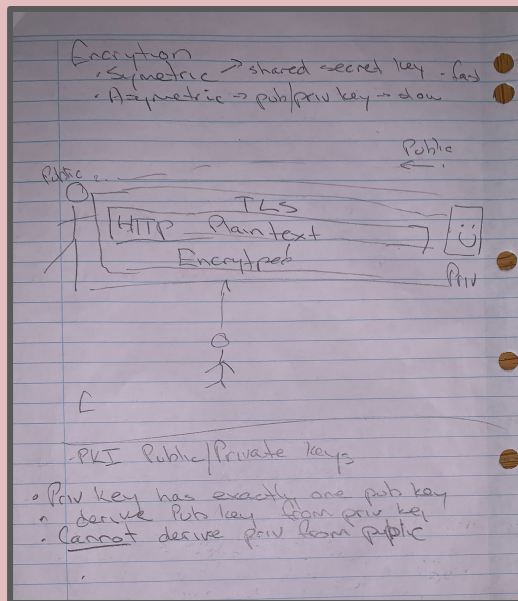 Encrytion
· Symetric → shared secret key · fast
· Asymetric → pub/priv key → slow
Public
Public
TLS
HTTP Plaintext
Encrytped
Priv
PKI Public/Private keys
· Priv key has exactly one pub key
· derive Pub key from priv key
· Cannot derive priv from public